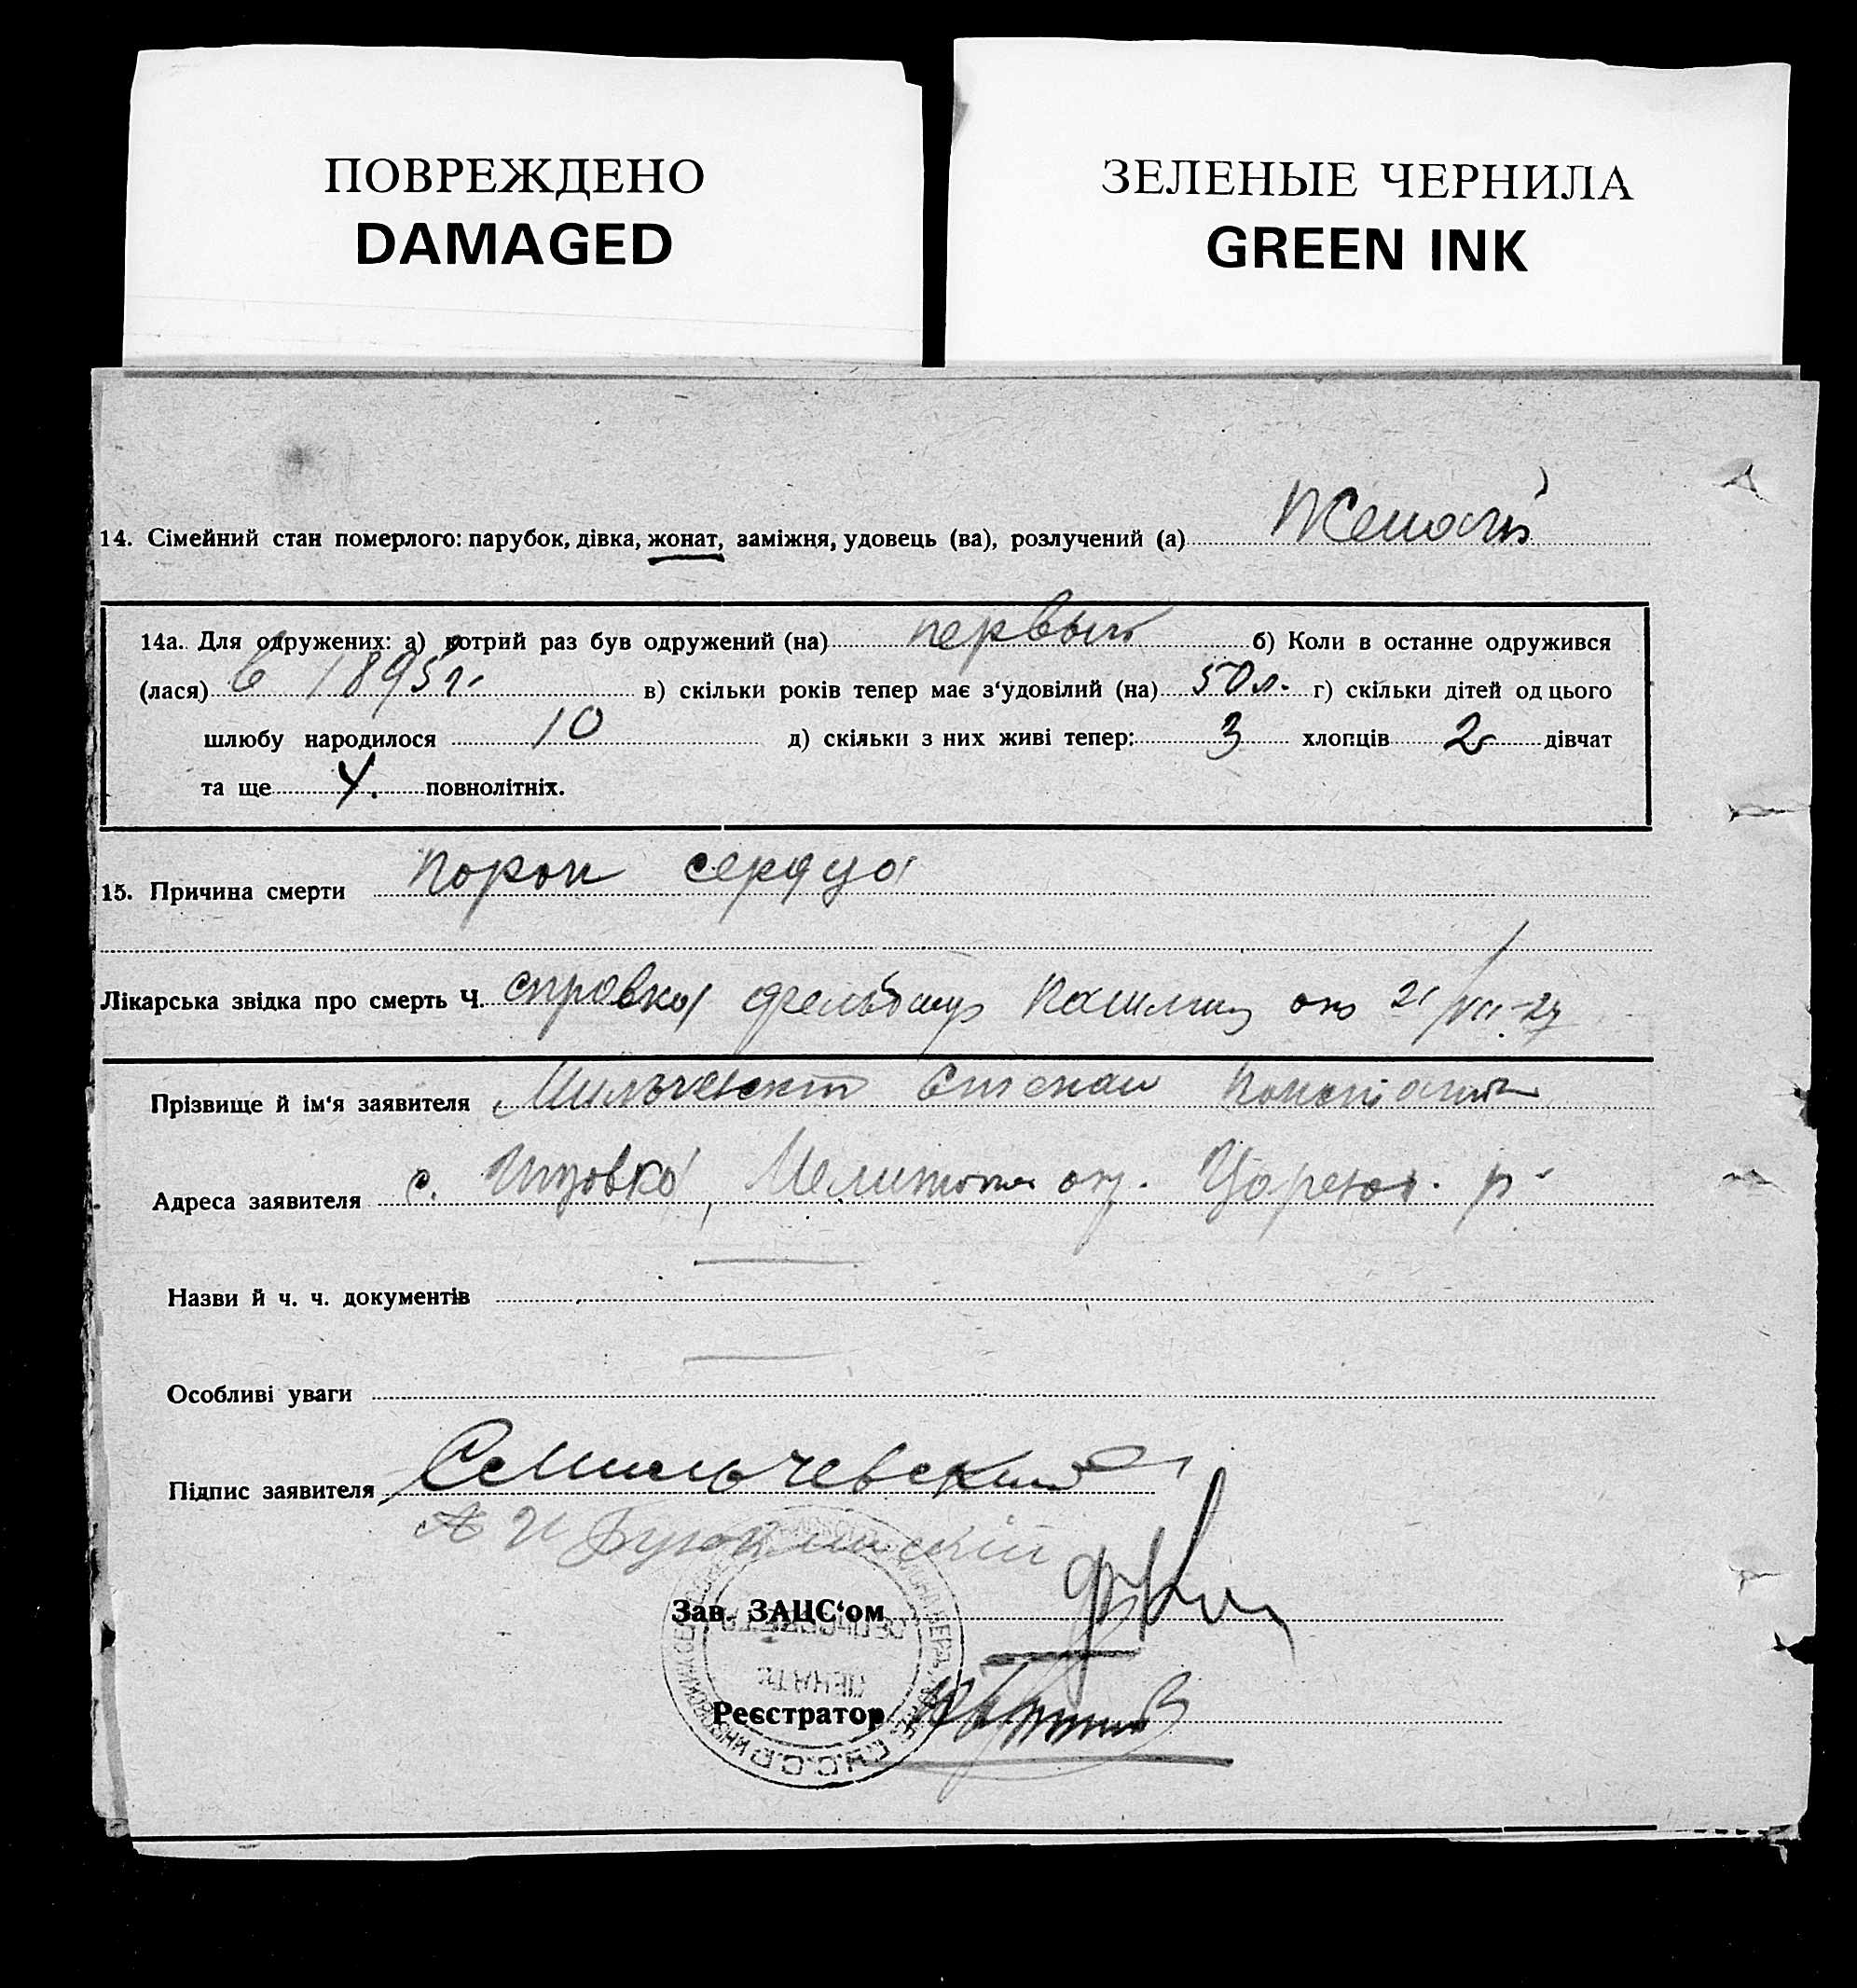 ПОВРЕЖДЕНО
DAMAGED
ЗЕЛЕНЫЕ ЧЕРНИЛА
GREEN INK
14. Сімейний стан померлого: парубок, дівка, жонат, заміжня, удовець (ва), розлучений (а) Женатый
14а. Для одружених: а) котрий раз був одружений (на) первый б) Коли в останнє одружився
(лася) в 1895 г. в) скільки років тепер має з‘удовілий (на) 50 л. г) скільки дітей од цього
шлюбу народилося 10 д) скільки з них живі тепер: 3 хлопців 2 дівчат
та ще 4. повнолітніх.
15. Причина смерти порок сердца
Лікарська звідка про смерть Ч. справка от 21/VII-27
Прізвище й ім‘я заявителя Степан
Адреса заявителя с. Мелитопол окр. р
Назви й ч. ч. документів
Особливі уваги
Підпис заявителя СМильчевский
Зав. ЗАЦС‘ом
Реєстратор
У.С.С.Р.